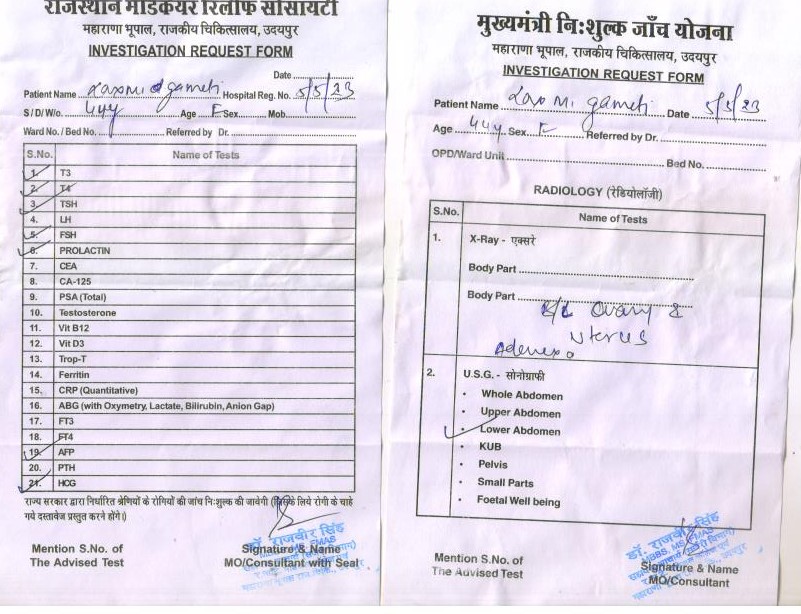 राजस्थान मेडिकेयर रिलीफ सोसायटी
महाराणा भूपाल, राजकीय चिकित्सालय, उदयपुर
INVESTIGATION REQUEST FORM
Date
Patient Name Laxmi gameti Hospital Reg. No. 5/5/23
S/D/W/o. 44y Age F Sex Mob.
Ward No. / Bed No. Referred by Dr.
S.No. Name of Tests
1. T3
2. T4
3. TSH
4. LH
5. FSH
6. PROLACTIN
7. CEA
8. CA-125
9. PSA (Total)
10. Testosterone
11. Vit B12
12. Vit D3
13. Trop-T
14. Ferritin
15. CRP (Quantitative)
16. ABG (with Oxymetry, Lactate, Bilirubin, Anion Gap)
17. FT3
18. FT4
19. AFP
20. PTH
21. HCG
राज्य सरकार द्वारा निर्धारित श्रेणियों के रोगियों की जांच निःशुल्क की जावेगी (जिसके लिये रोगी के चाहे
गये दस्तावेज प्रस्तुत करने होंगे।)
डॉ. राजवीर सिंह
Mention S.No. of Signature & Name
The Advised Test MO/Consultant with Seal
मुख्यमंत्री निःशुल्क जाँच योजना
महाराणा भूपाल, राजकीय चिकित्सालय, उदयपुर
INVESTIGATION REQUEST FORM
Patient Name Laxmi gameti Date 5/5/23
Age 44y Sex F Referred by Dr.
OPD/Ward Unit Bed No.
RADIOLOGY (रेडियोलॉजी)
S.No. Name of Tests
1. X-Ray - एक्सरे
Body Part
Body Part
B/L Ovary &
Uterus
Adenexa
2. U.S.G. - सोनोग्राफी
• Whole Abdomen
• Upper Abdomen
• Lower Abdomen
• KUB
• Pelvis
• Small Parts
• Foetal Well being
डॉ. राजवीर सिंह
MBBS, MS, FMAS
Mention S.No. of Signature & Name
The Advised Test MO/Consultant